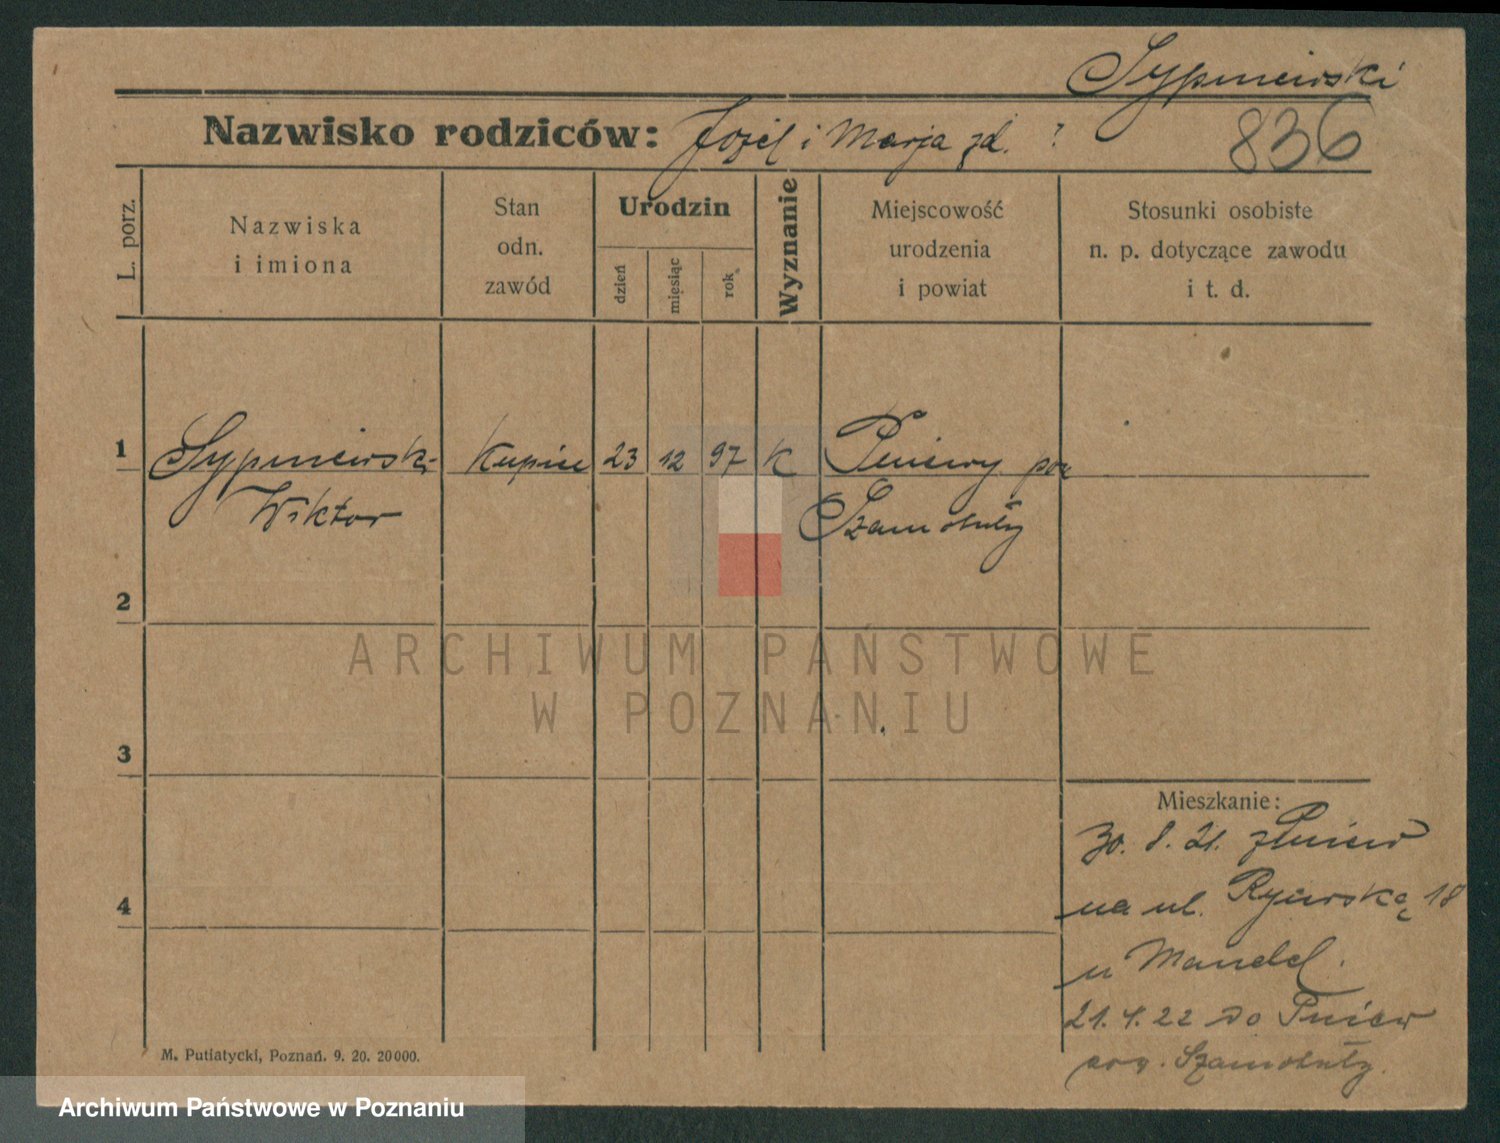 Sypniewski
Nazwisko rodziców: Józef i Marja zd. ?
836
L. porz.
Nazwiska
i imiona
Stan
odn.
zawód
Urodzin
dzień
miesiąc
rok
Wyznanie
Miejscowość
urodzenia
i powiat
Stosunki osobiste
n. p. dotyczące zawodu
i t. d.
1 Sypniewski Kupiec 23 12 97 K Pniewy pow
Wiktor Szamotuły
2
3
4
Mieszkanie:
30. 8. 21. z Pniew
na ul. 18
u Mandel.
21. 4. 22 do Pniew
pow. Szamotuły.
M. Putiatycki, Poznań. 9. 20. 20000.
ARCHIWUM PAŃSTWOWE
W POZNANIU
Archiwum Państwowe w Poznaniu